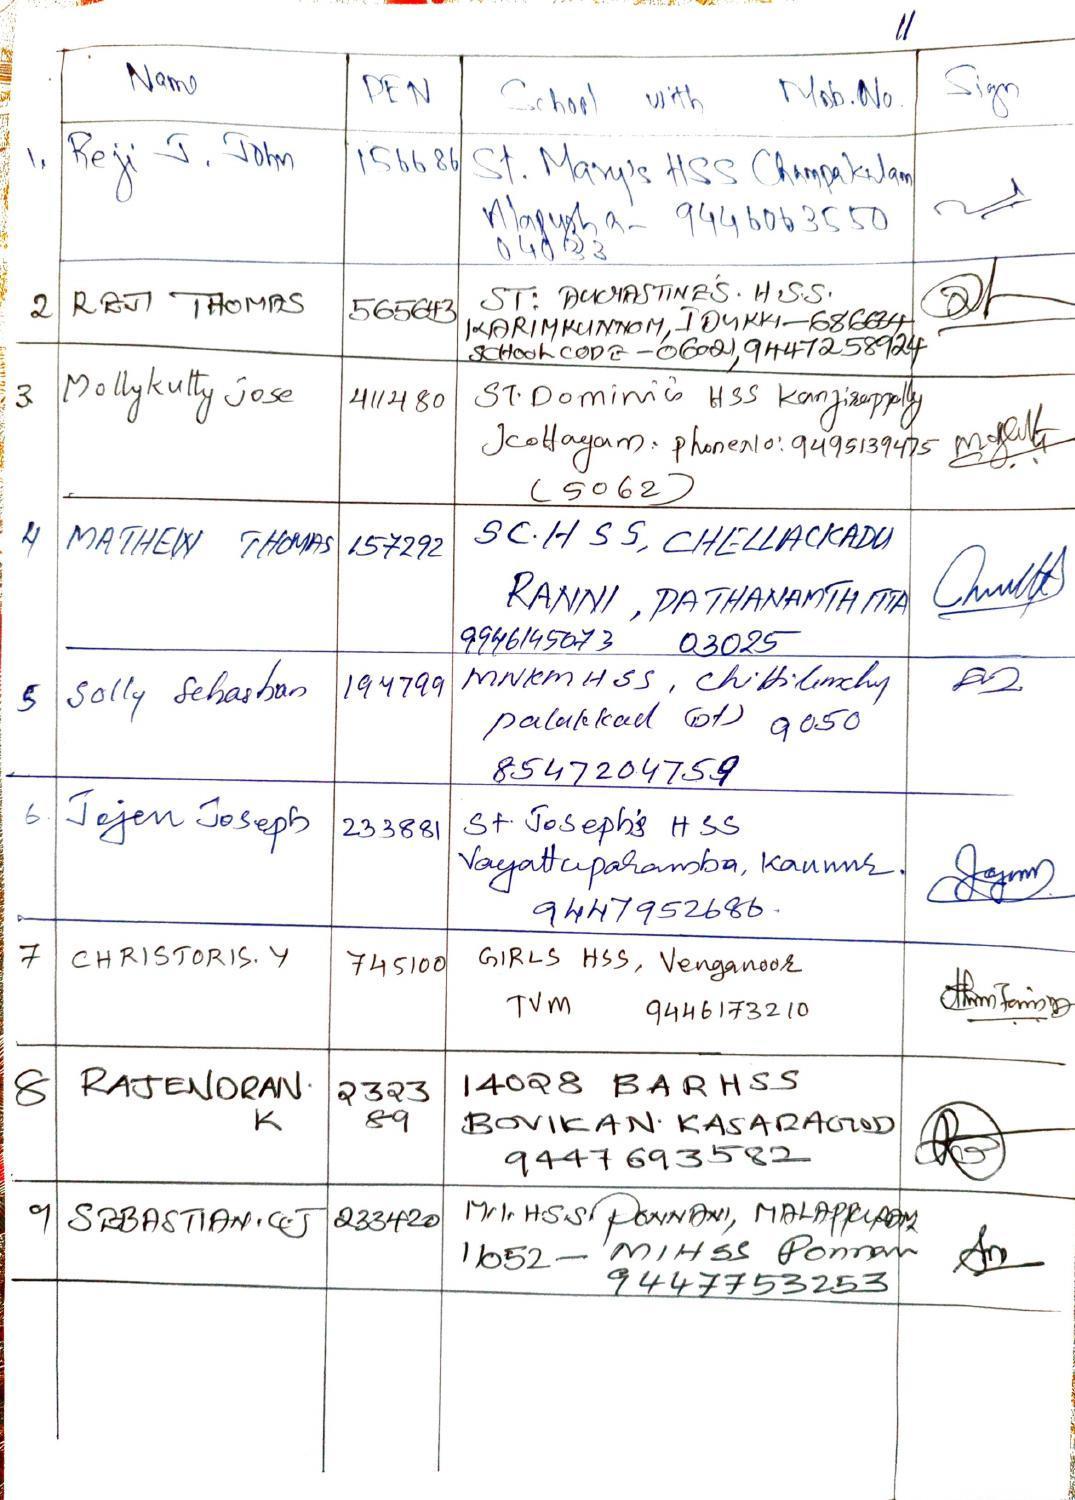 11
Name PEN School with Mob.No. Sign
1. Reji J. John 156686 St. Mary's HSS Champakulam
Alapuzha - 9446063550
04033
2 REJI THOMAS 565643 ST: AUGHASTINE'S. H.S.S.
KARIMKUNNOM, IDUKKI-686684
SCHOOL CODE - 06021, 9447258924
3 Mollykutty jose 411480 ST. Dominic's HSS Kanjirappally
Kottayam. phoneno: 9495139475
(5062)
4 MATHEW THOMAS 157292 SC. H S S, CHELLACKADU
RANNI, PATHANAMTHITTA
9946145073 03025
5 Solly Sebastian 194799 MNKM HSS, Chittilanchy
palakkad (Dt) 9050
8547204759
6 Jojen Joseph 233881 St. Joseph's HSS
Vayattuparamba, Kannur.
9447952686.
7 CHRISTORIS. Y 745100 GIRLS HSS, Venganoor
TVM 9446173210
8 RAJENDRAN. 2323 14028 BARHSS
K 89 BOVIKAN. KASARAGOD
9447693582
9 SEBASTIAN. 233420 M.I. HSS. PONNANI, MALAPPURAM
11052 - MIHSS Ponnani
9447753253